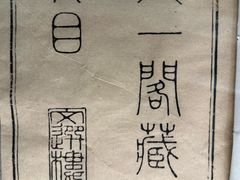 一閣藏
目
文選樓